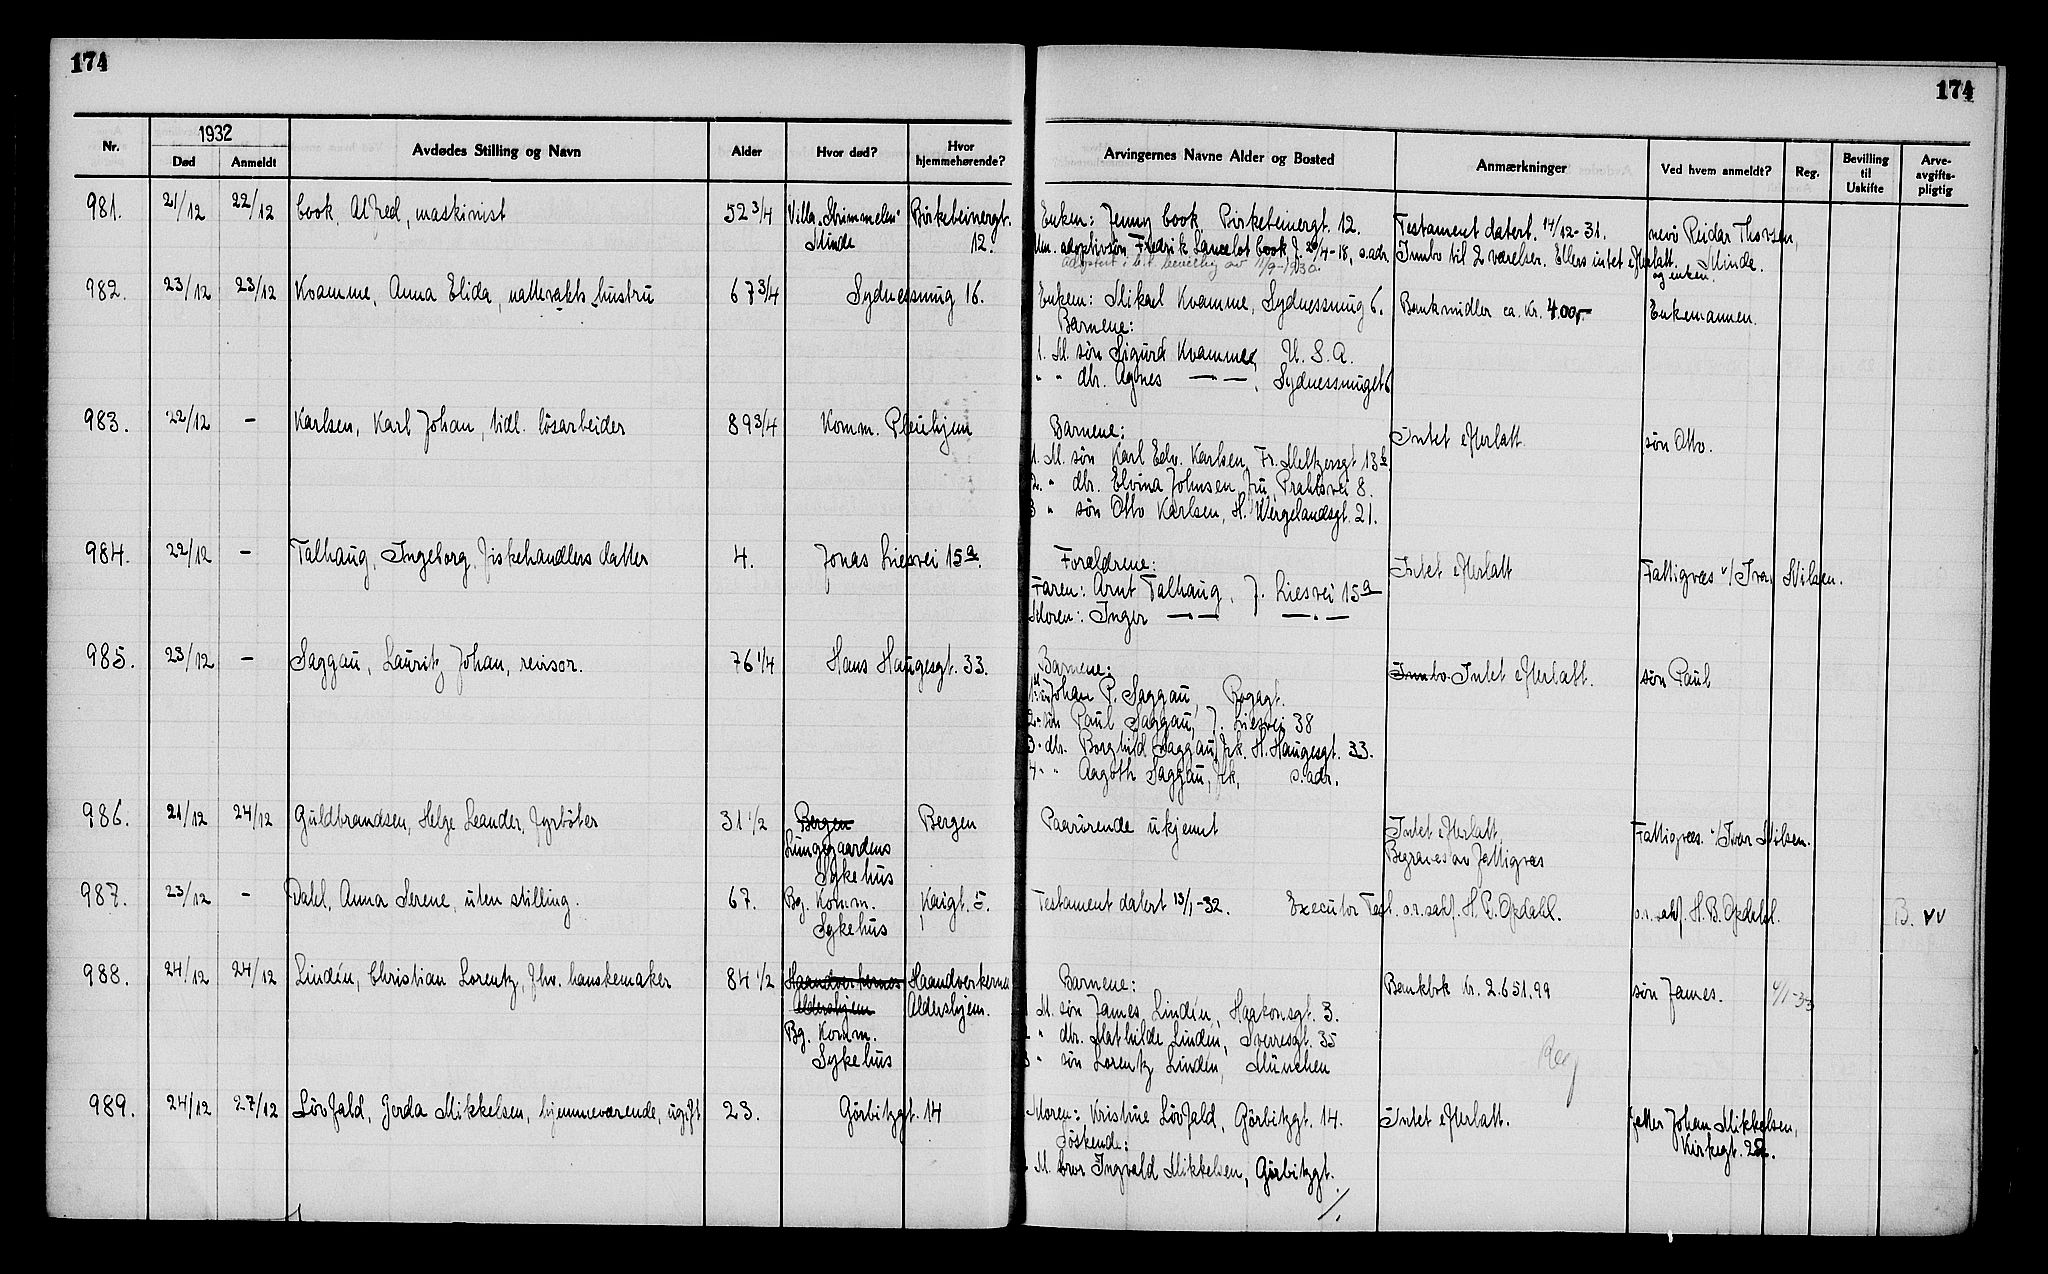 174
174
Nr.
1932
Død
Anmeldt
Avdødes Stilling og Navn
Alder
Hvor død?
Hvor hjemmehørende?
Arvingernes Navne Alder og Bosted
Anmærkninger
Ved hvem anmeldt?
Reg.
Bevilling til Uskifte
Arve-avgifts-pligtig
981. 21/12 22/12 Cook, Alfred, maskinist 52 3/4 Villa „Strimmelen" Birkebeinergt. Enken: Jenny Cook, Birkebeinergt. 12. Testament datert. 14/12-31. nevø Reidar Thorsen,
Minde 12. Um. adoptivsøn Fredrik Lancelot Cook f. 20/4-18, s. adr. Innbo til 2 værelser. Ellers intet efterlatt. Minde.
adoptert i h.t. bevilling av 11/9-1930. og enken.
982. 23/12 23/12 Kvamme, Anna Elida, nattevakts hustru 67 3/4 Sydnessmug 16. Enkem: Mikael Kvamme, Sydnessmug 6. Bankmidler ca. kr. 400,- Enkemannen.
Barnene:
1. M. søn Sigurd Kvamme, U. S. A.
" " dtr. Agnes —"— , Sydnessmuget 6
983. 22/12 - Karlsen, Karl Johan, tidl. løsarbeider 89 3/4 Komm. Pleiehjem Barnene: Intet efterlatt. søn Otto.
1. M. søn Karl Edv. Karlsen, Fr. Meltzersgt 13 b
2. " dtr. Elvina Johnsen, fru, Prahlsvei 8.
3 " søn Otto Karlsen, H. Wergelandsgt. 21.
984. 22/12 - Talhaug, Ingeborg, fiskehandlers datter 4. Jonas Liesvei 15 a. Forældrene: Intet efterlatt Fattigvæs v/ Ivar Nilsen.
Faren: Arnt Talhaug, J. Liesvei 15 a
Moren: Inger —"— —"—
985. 23/12 - Saggau, Lauritz Johan, revisor. 76 1/4 Hans Haugesgt. 33. Barnene: Innbo. Intet efterlatt. søn Paul
1. M. søn Johan P. Saggau,
2 - søn Paul Saggau, J. Liesvei 38
3 - dtr. Borghild Saggau, frk. H. Haugesgt. 33.
4 - " Aagoth Saggau, frk, s. adr.
986. 21/12 24/12 Guldbrandsen, Helge Leander, fyrbøter 31 1/2 Bergen Bergen Paarørende ukjennt Intet efterlatt, Fattigvæs. v/ Ivar Nilsen.
Lungegaardens Begraves av fattigvæs
Sykehus
987. 23/12 - Dahl, Anna Serene, uten stilling. 67. Bg. Komm. Kaigt. 5. Testament datert 13/1-32. Executor Test. o.r.sakf. H. B. Opdahl. o.r.sakf. H. B. Opdahl. B. vv
Sykehus
988. 24/12 24/12 Lindén, Christian Lorentz, fhv. hanskemaker 84 1/2 Haandverkernes Haandverkernes Barnene: Bankbok kr. 2.651.99 søn James. 4/1-33
Aldershjem Aldershjem. 1 M. søn James Lindén, Haakonsgt. 3.
Bg. Komm. 2 " dtr. Mathilde Lindén, Sverresgt. 35
Sykehus 3 " søn Lorentz Lindén, München Reg
989. 24/12 27/12 Løvfald, Gerda Mikkelsen, hjemmeværende, ugift 23. Görbitzgt. 14 Moren: Kristine Løvfald, Görbitzgt. 14. Intet efterlatt. fetter Johan Mikkelsen,
Søskende: Kirkegt. 22.
1 M. bror Ingvald Mikkelsen, Görbitzgt.